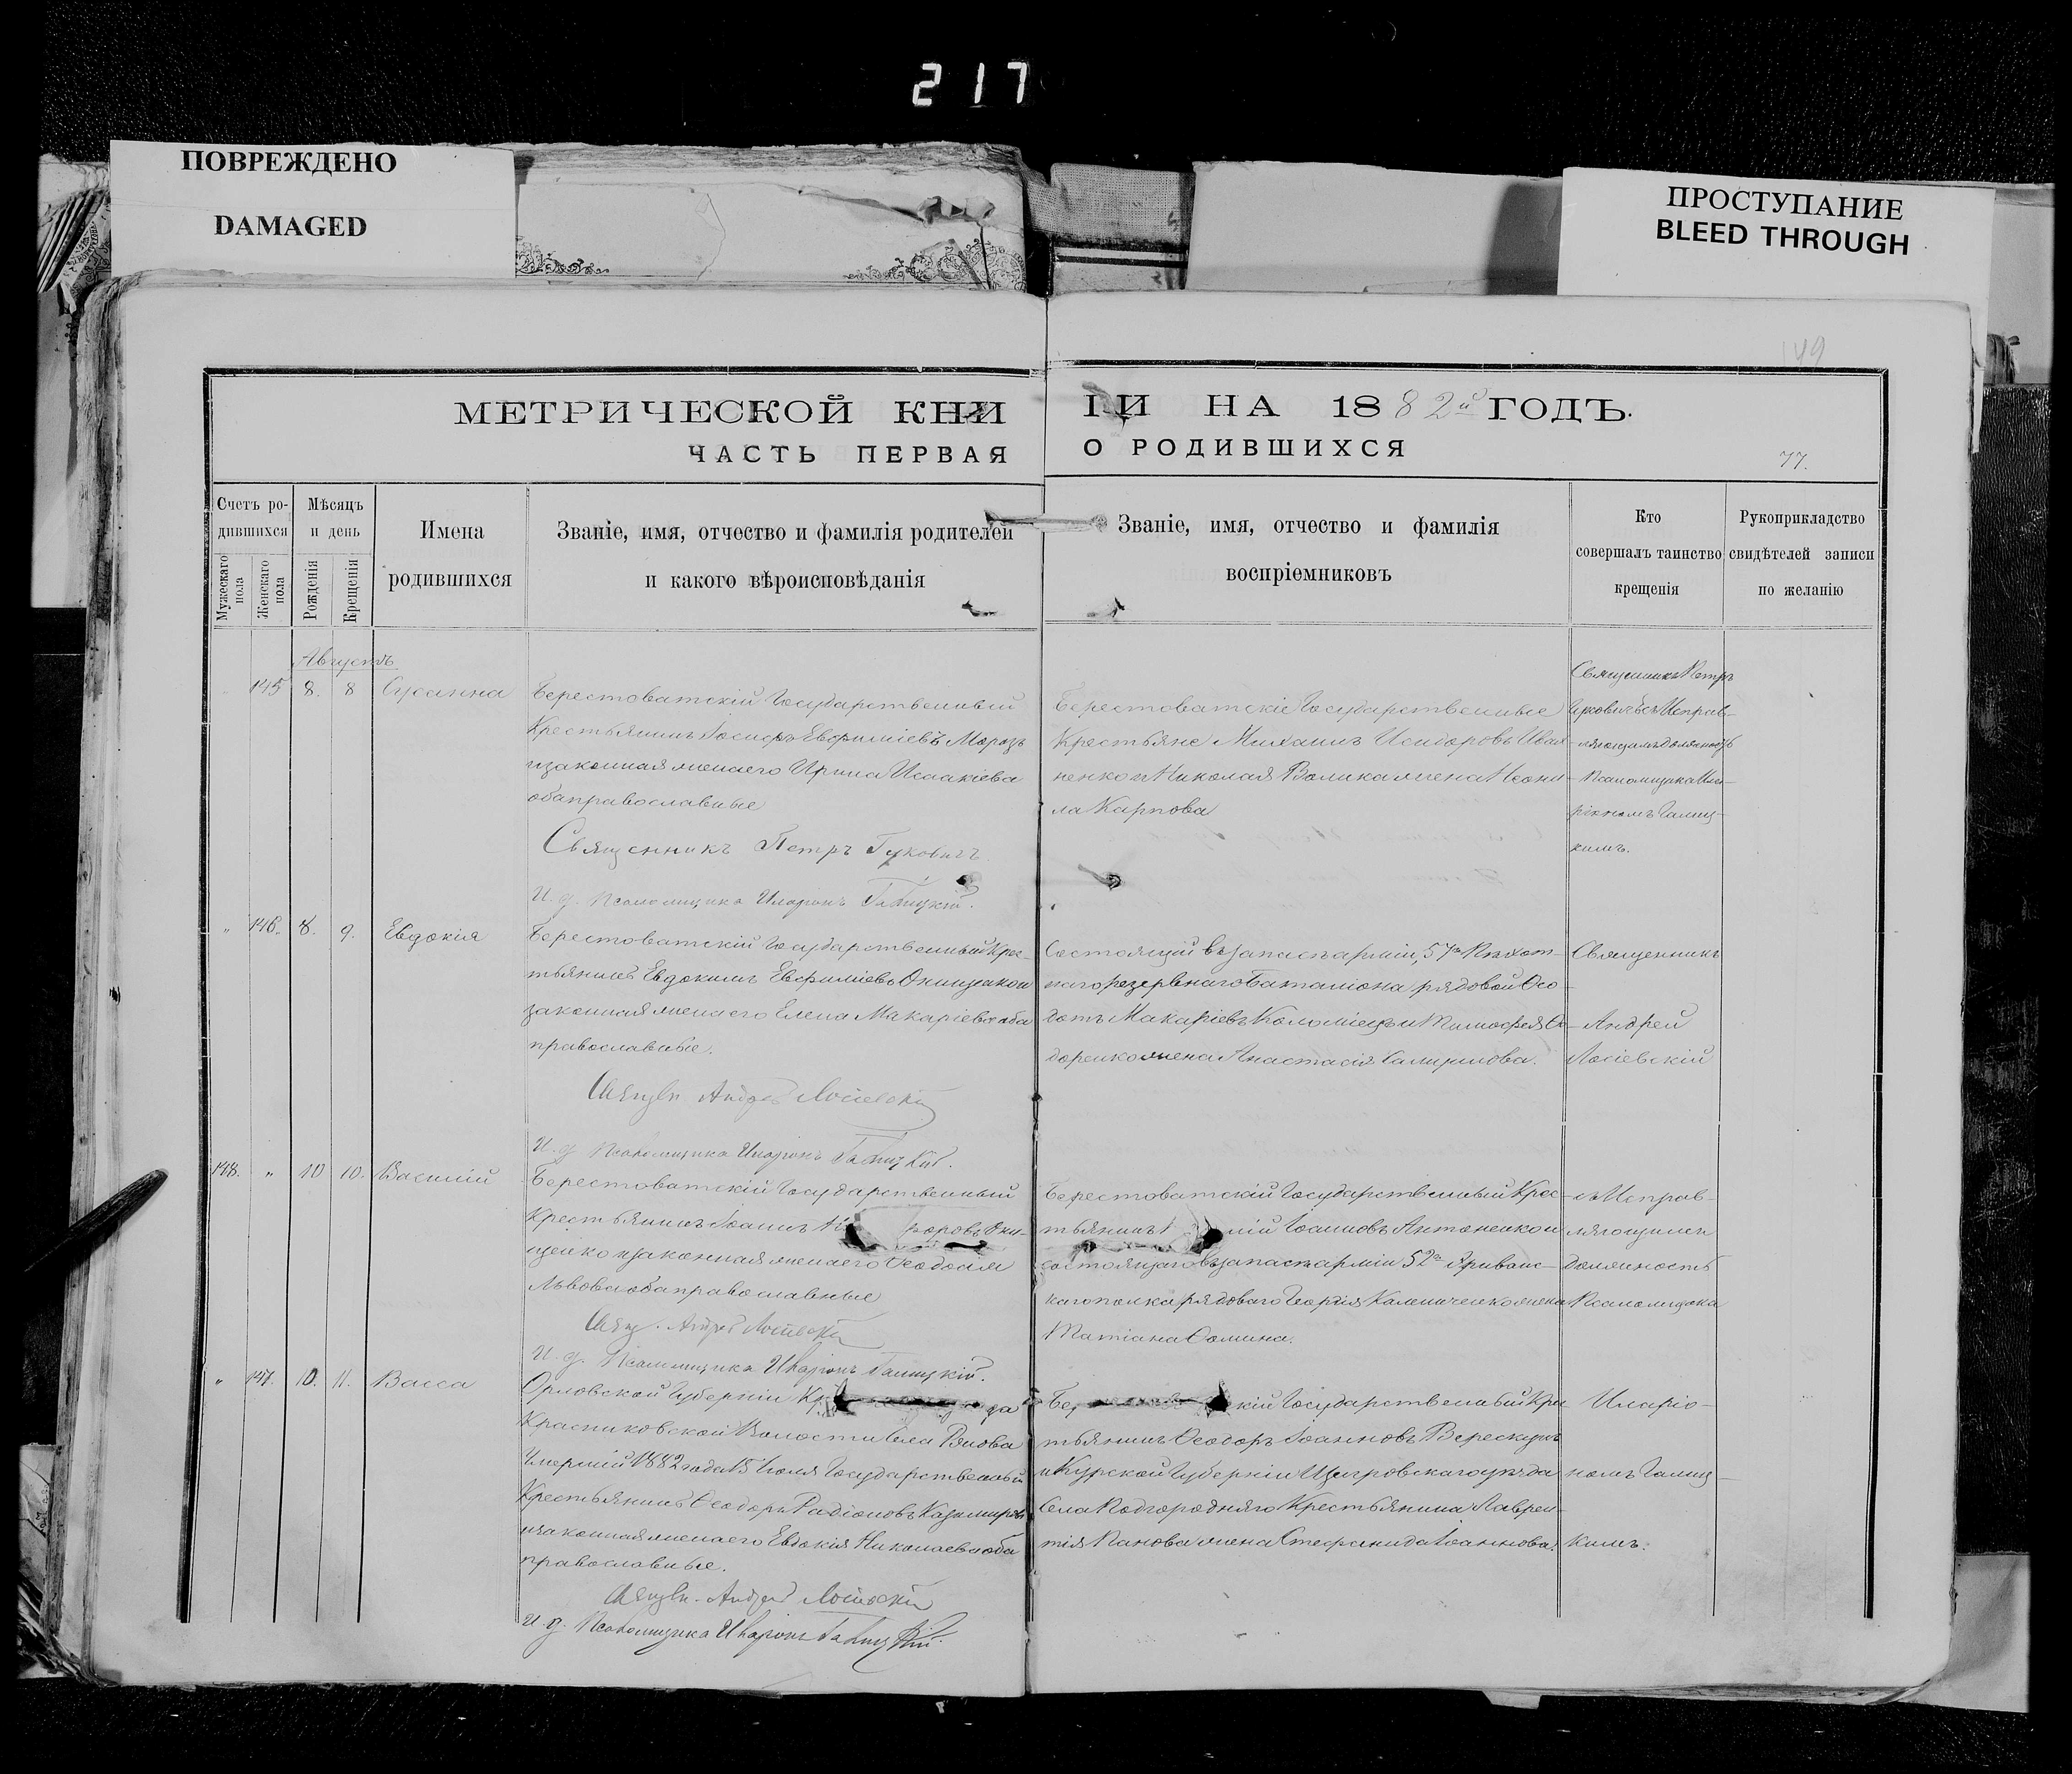 217
ПОВРЕЖДЕНО
DAMAGED
ПРОСТУПАНИЕ
BLEED THROUGH
149
МЕТРИЧЕСКОЙ КНИГИ НА 1882й ГОДЪ.
ЧАСТЬ ПЕРВАЯ О РОДИВШИХСЯ
77.
Счетъ родившихся
Мужескаго пола
Женскаго пола
Мѣсяцъ и день
Рожденія
Крещенія
Имена родившихся
Званіе, имя, отчество и фамилія родителей
и какого вѣроисповѣданія
Званіе, имя, отчество и фамилія
воспріемниковъ
Кто
совершалъ таинство
крещенія
Рукоприкладство
свидѣтелей записи
по желанію
Августъ
145 8. 8 Сусанна
Берестоватскій Государственный
Крестьянинъ Іосифъ Евфиміевъ Морозъ
и законная жена его Ирина Исаакіева
оба православные
Священникъ Петръ Гуковичъ
И. д. псаломщика Иларіонъ Галицкій.
Берестоватскіе Государственные
Крестьяне Михаилъ Исидоровъ Иван-
ненко и Николая Волика жена Неони-
ла Карпова
Священникъ Петръ
Гуковичъ съ Исправ-
ляющимъ должность
Псаломщика Ила-
ріономъ Галиц-
кимъ.
" 146. 8. 9. Евдокія
Берестоватскій Государственный Крес-
тьянинъ Евдокимъ Евфиміевъ Онищенко и
законная жена его Елена Макаріева оба
православные.
Священ. Андрей Лосіевскій
И. д. Псаломщика Иларіонъ Галицкій.
Состоящій въ запасѣ арміи, 57го Пѣхот-
наго резервнаго Баталіона рядовой Ѳео-
дотъ Макаріевъ Коломіецъ и Тимофея
доренко жена Анастасія
Священникъ
Андрей
Лосіевскій
148. " 10 10. Василій
Берестоватскій Государственный
Крестьянинъ Іоаннъ оровъ Они-
щенко и законная жена его Ѳеодосія
Львова оба православные
Свящ. Андрей Лосіевскій
И. д. Псаломщика Иларіонъ Галицкій.
Берестоватскій Государственный Крес-
тьянинъ ній Іоанновъ Антоненко и
состоящаго въ запасѣ арміи 52го Эриванс-
каго полка рядоваго Георгія Калениченко жена
Татіана Ѳомина.
съ Исправ-
ляющимъ
должность
Псаломщика
" 147. 10. 11. Васса
Орловской Губерніи Кр да
Красниковской Волости Села
Умершій 1882 года 15 Іюля Государственный
Крестьянинъ Ѳеодоръ Радіоновъ
и законная жена его Евдокія Николаева оба
православные.
Священ. Андрей Лосіевскій
И. д. Псаломщика Иларіонъ Галицкій.
Бер кій Государственный Крес-
тьянинъ Ѳеодоръ Іоанновъ
и Курской Губерніи Щигровскаго уѣзда
Села Подгородняго Крестьянина Лаврен-
тія Панова жена Стефанида Іоаннова.
Иларіо-
номъ Галиц-
кимъ.